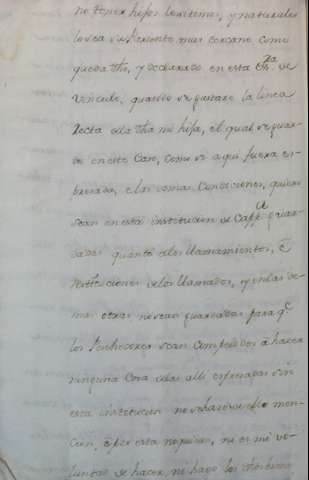 no tener hijos lexitimos, y naturales
lo sea su Pariente mas cercano, como
queda dho, y declarado en esta Esta. de
Vinculo, quando se quitare la linea
recta de la dha mi hija, el qual se guar-
de en este caso, como si aqui fuera ex-
presado, e las demas Condiciones, quiero
sean en esta institucion de Cappa. guar-
dadas quanto a los llamamientos, e
restituciones de los llamados, y en las de-
mas otras no sean guardadas para qe.
los Poshedores sean Compelidos à hacer
ninguna Cosa de las alli expresadas sin
esta institucion no se hace de ello men-
cion, è por esta no quiero, ni es mi vo-
luntad de hacer, ni hago los